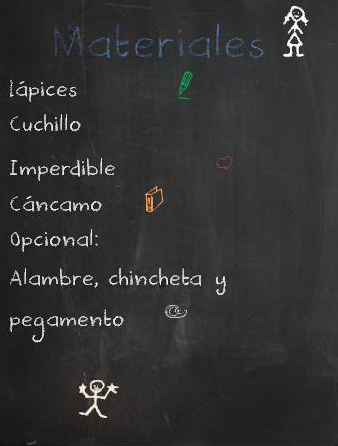 Materiales
lápices
Cuchillo
Imperdible
Cáncamo
Opcional:
Alambre, chincheta y
pegamento